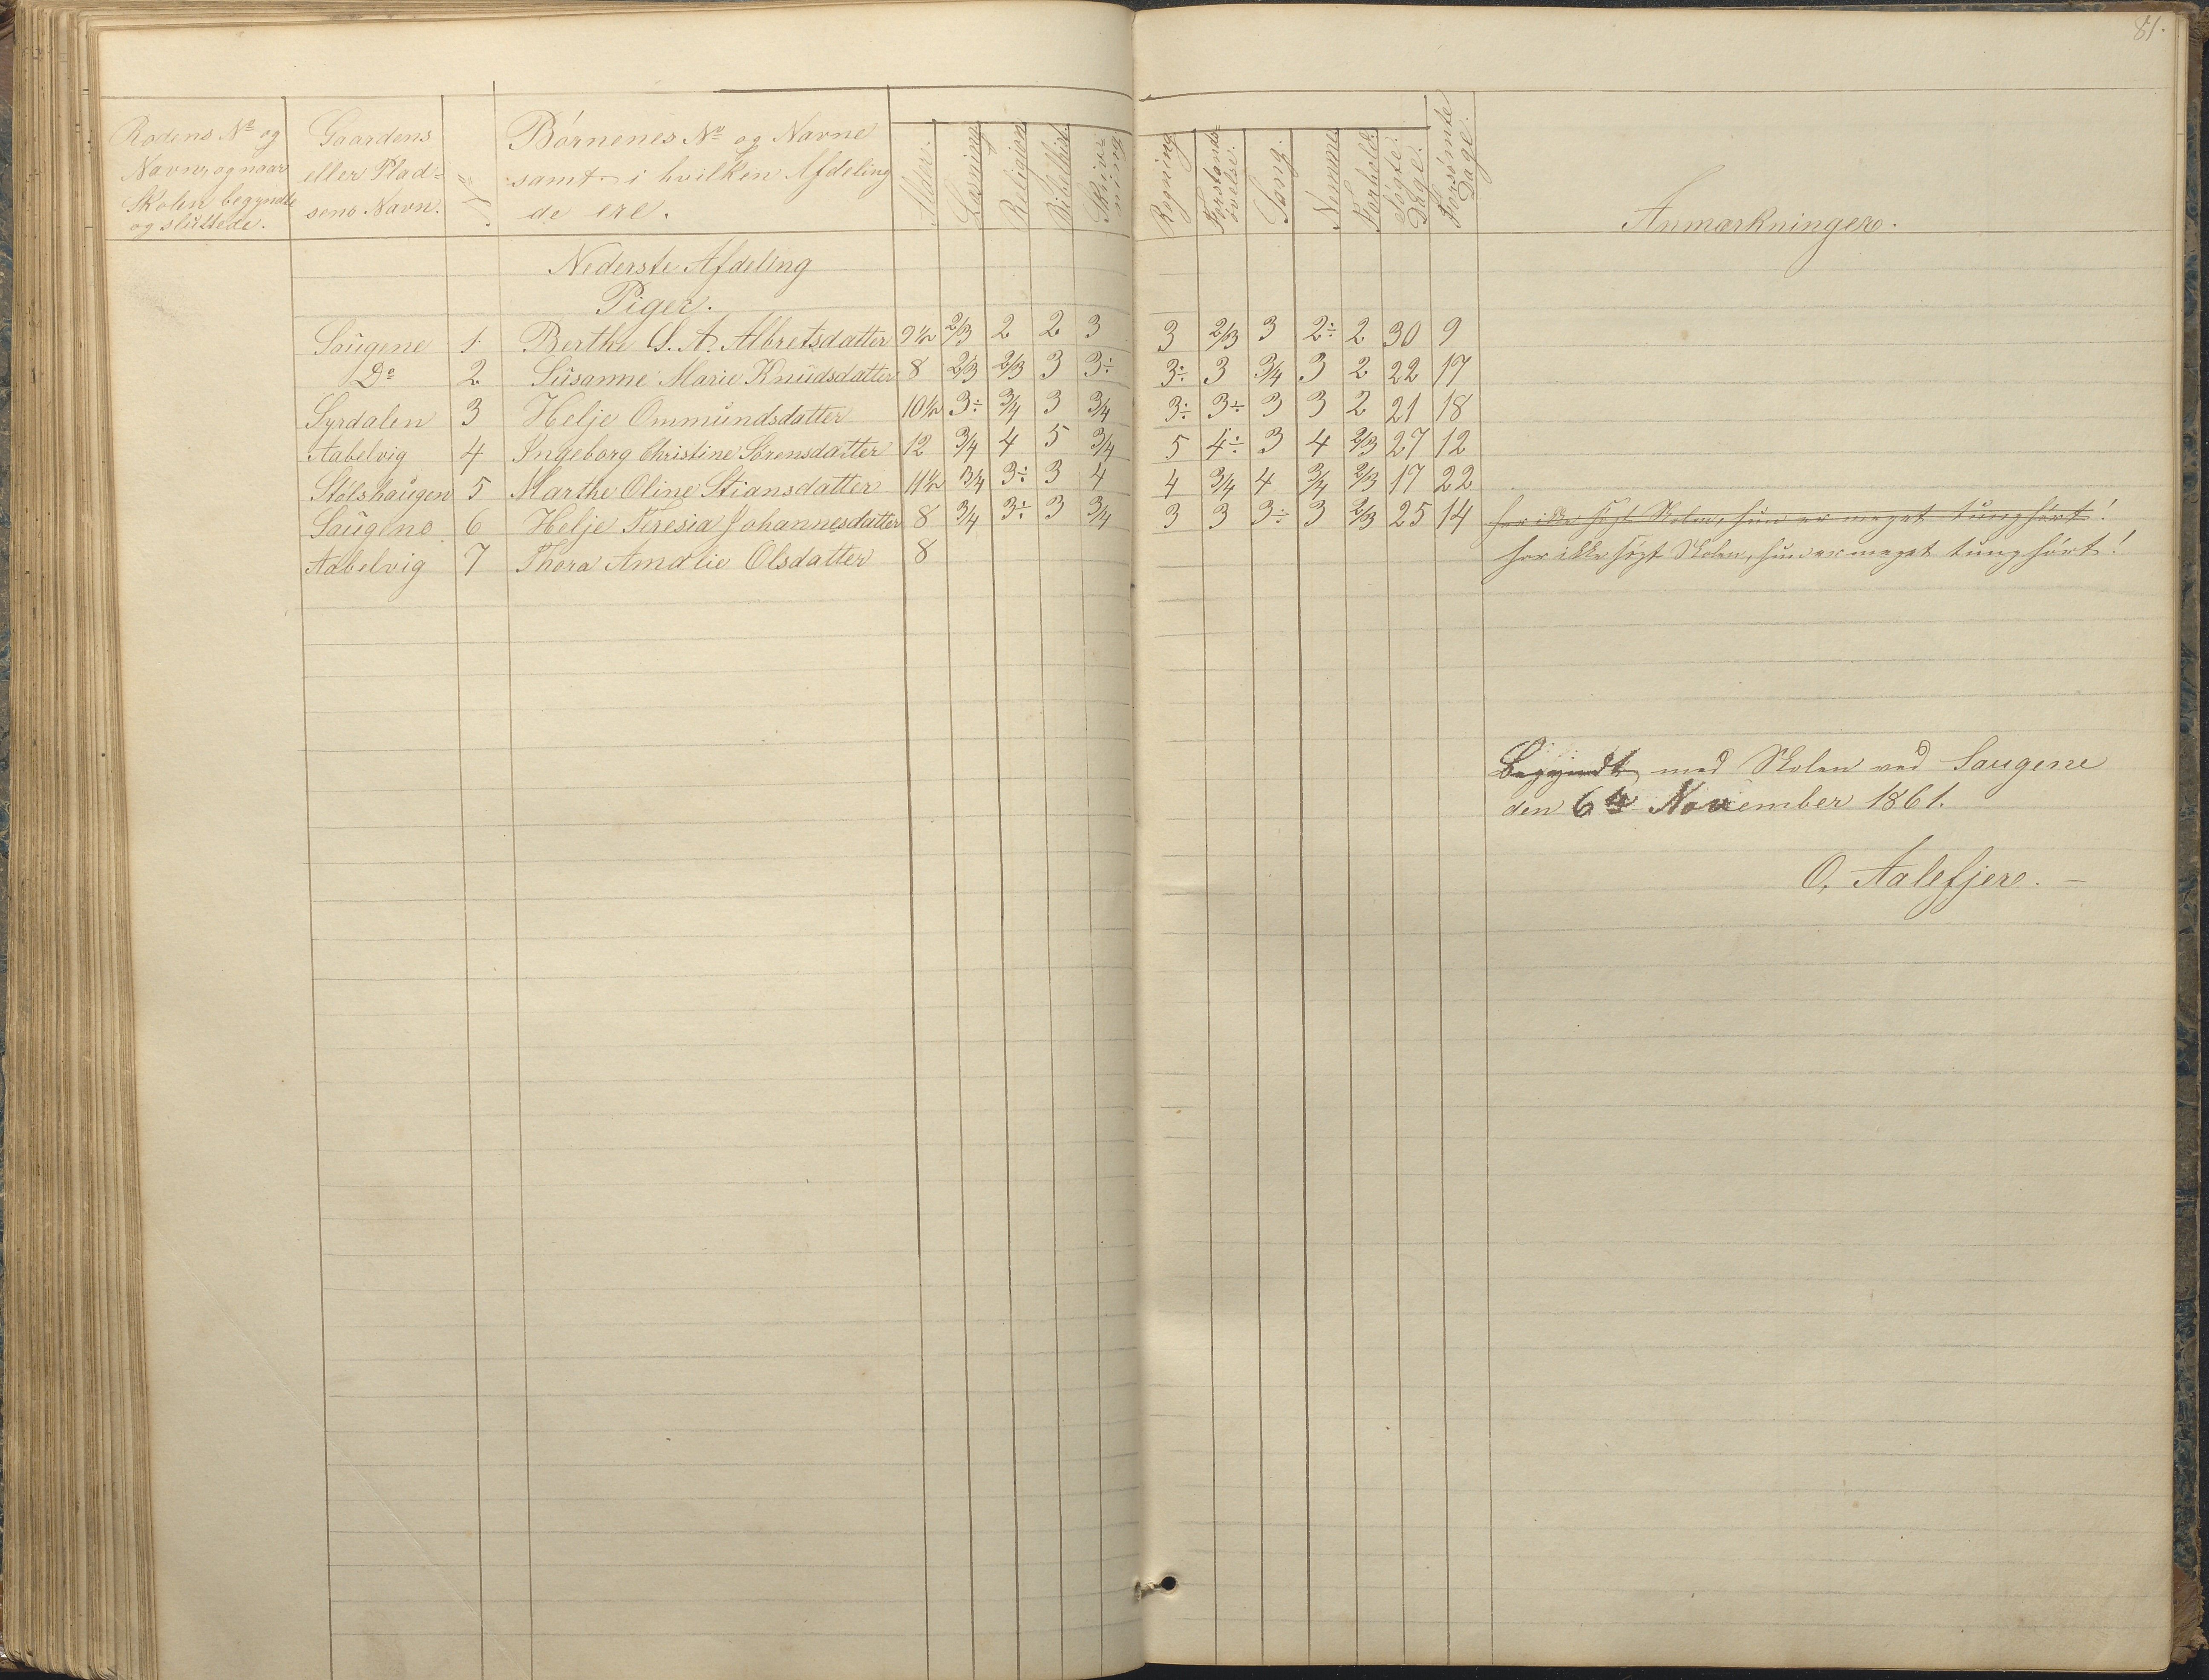 81.
Rodens No og Navn, og naar Skolen begyndte og sluttede. Gaardens eller Plad= sens Navn. No Börnenes No og Navne samt i hvilken Afdeling de ere. Alder. Læsning Religion Bibelhist. Skriv- ning Regning Forstands- övelse. Sang. Nemme Forhold. Sögte Dage. Forsömte Dage. Anmærkninger.
Nederste Afdeling
Piger.
Saugene 1. Berthe S. A. Albretsdatter 9½ 2/3 2 2 3 3 2/3 3 2÷ 2 30 9
Do 2 Susanne Marie Knudsdatter 8 2/3 2/3 3 3÷ 3÷ 3 3/4 3 2 22 17
Syrdalen 3 Helje Ommundsdatter 10½ 3÷ 3/4 3 3/4 3÷ 3÷ 3 3 2 21 18
Aabelvig 4 Ingeborg Christine Sörensdatter 12 3/4 4 5 3/4 5 4÷ 3 4 2/3 27 12
Stölshaugen 5 Marthe Oline Stiansdatter 11½ 3/4 3÷ 3 4 4 3/4 4 3/4 2/3 17 22
Saugene 6 Helje Teresia Johannesdatter 8 3/4 3÷ 3 3/4 3 3 3÷ 3 2/3 25 14 har ikke sögt Skolen, hun er meget tunghört!
Aabelvig 7 Thora Amalie Olsdatter 8 har ikke sögt Skolen, hun er meget tunghört!
Begyndt med Skolen ved Saugene
den 6te November 1861.
O. Aalefjer. —